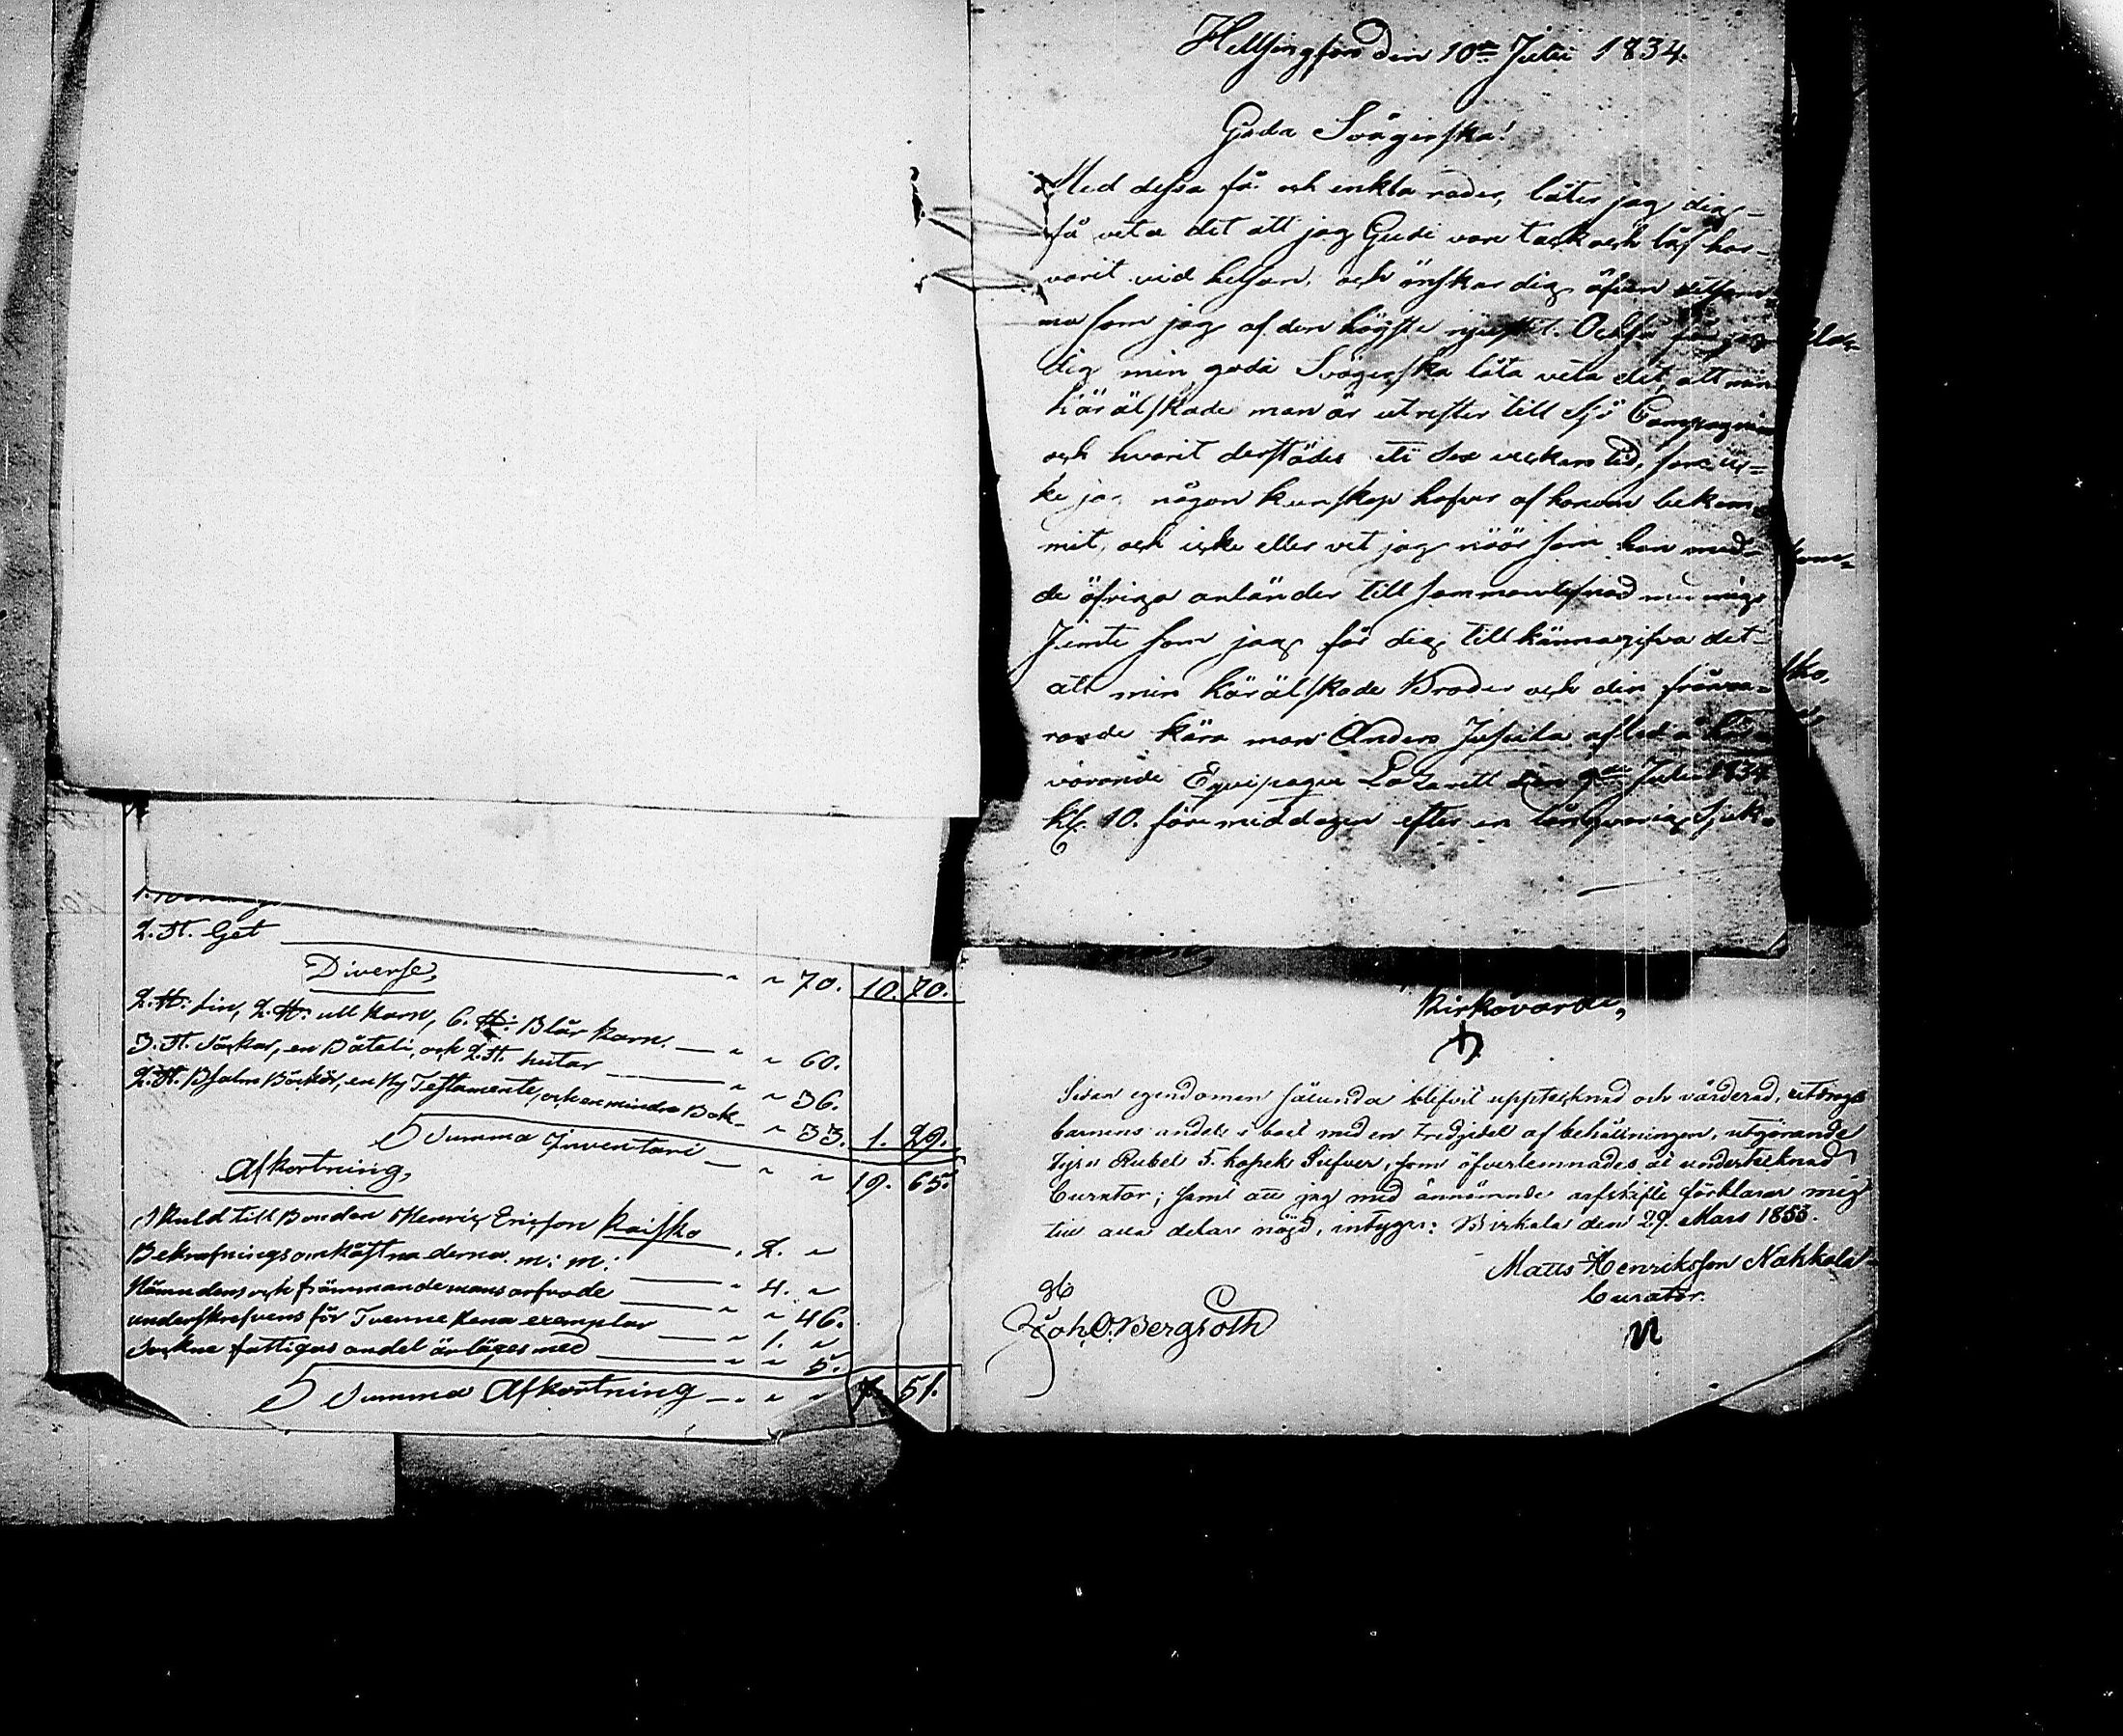 2. St. Get " " 70. 10. 70.
Diverse,
2. ℔: lin, 2. ℔: ull karn, 6. ℔: Blår karn. " " 60.
3. St. säckar, en Båteli, och 2. St. hutar " " 36.
2. St. Psalm Böcker, en Ny Testamente, och en mindre Bok " 33. 1. 29.
Summa Inventarii " " 19. 65.
Afkortning,
Skuld till Bonden Henric Ericsson Kaisko " 2. "
Bekrafningsomkostnaderna m: m: " 4. "
Nämndens och främmande mans arfvode " " 46.
underskrefvens för Tvenne Rena exemplar " 1. "
Sockne fattigas andel ärlägges med " " 5.
Summa Afkortning " " 51.
Hellsingfors den 10de Julii 1834.
Goda Svägerska!
Med dessa få och enkla rader, låter jag dig
få veta det att jag Gudi vare tack och låf har
varit vid helsan, och önskar dig äfven detsam-
ma som jag af den högste njutit. Också får jag
dig min goda Svägerska låta veta det, att min
käräl skade man är utrester till sjö Compagnie
och hvarit derstädes uti sex veckors tid, som ic-
ke jag någon kunskap hafver af honom bekom-
mit, och icke eller vet jag näär som han med
de öfriga anländer till sammanlefnad med mig
Jemte som jag får dig tillkännagifva det
att min käräl skade Broder och din frånva-
rande kära man Anders Jusuila afled å här
varande Equipages Lazarett den 9de Julii 1834
kl. 10. före middagen efter en långvarig Sjuk-
Kirkovarde,
Sedan egendomen sålunda blifvit upptecknad och värderad, uttogs
barnens andel i boet med en tredjedel af behållningen, utgörande
Rubel 5. kopek Silfver, som öfverlemnades åt undertecknad
Curator; samt att jag med ännämnde arfskifte förklarar mig
till alla delar nöjd, intygar: Birkala den 29. Mars 1853.
Matts Henriksson Nakkala
Curator.
Joh. O. Bergroth